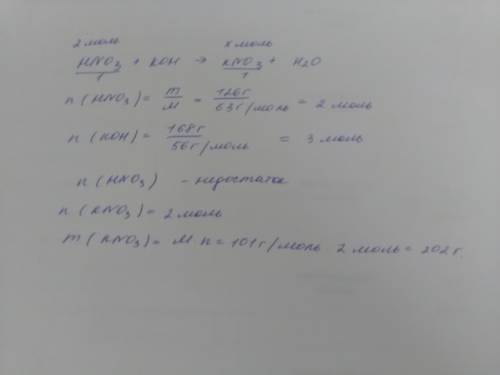 2 моль x моль
HNO3 + KOH → KNO3 + H2O
1 1
n (HNO3) = m/M = 126г/63г/моль = 2 моль
n (KOH) = 168г/56г/моль = 3 моль
n (HNO3) - недостаток
n (KNO3) = 2 моль
m (KNO3) = M n = 101г/моль 2 моль = 202г.